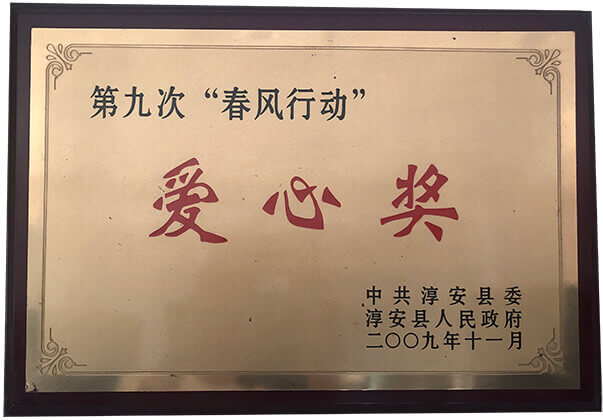 第九次“春风行动”
爱心奖
中共淳安县委
淳安县人民政府
二〇〇九年十一月